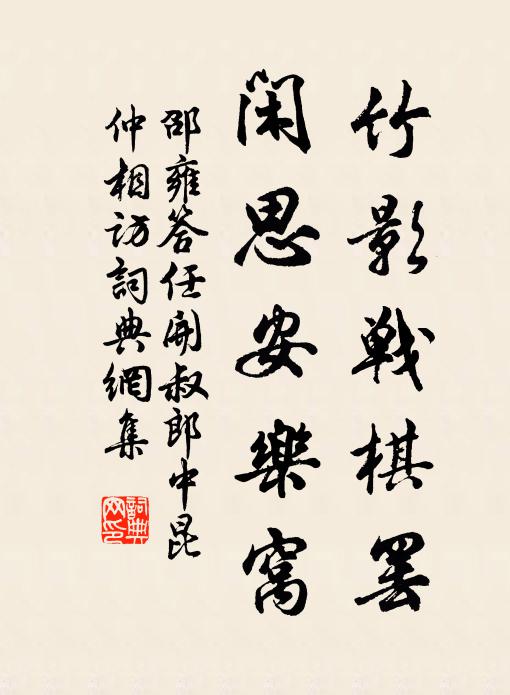 竹影戰棋罢
闲思安樂窩
邵雍答任開叔郎中昆
仲相访詞典網集
詞典网印